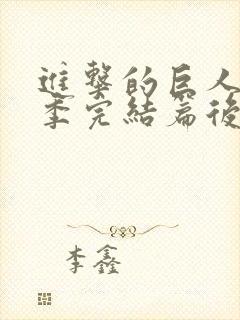 進擊的巨人
季完結篇後
李鑫